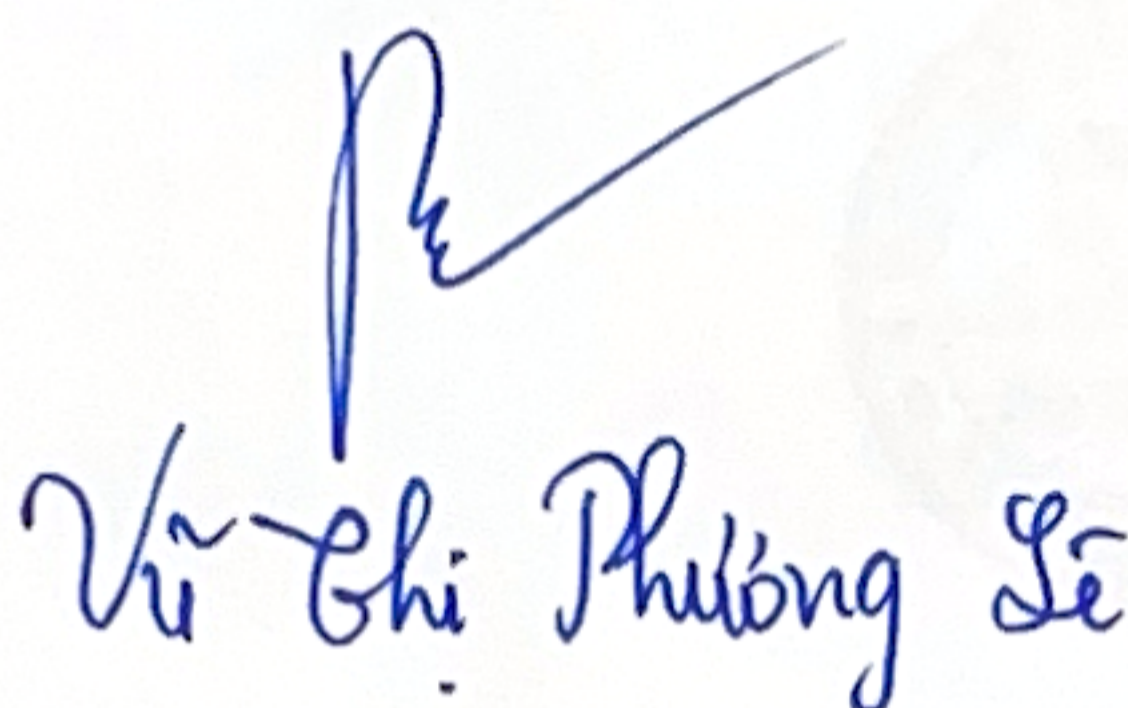 Vũ Thị Phương Lê